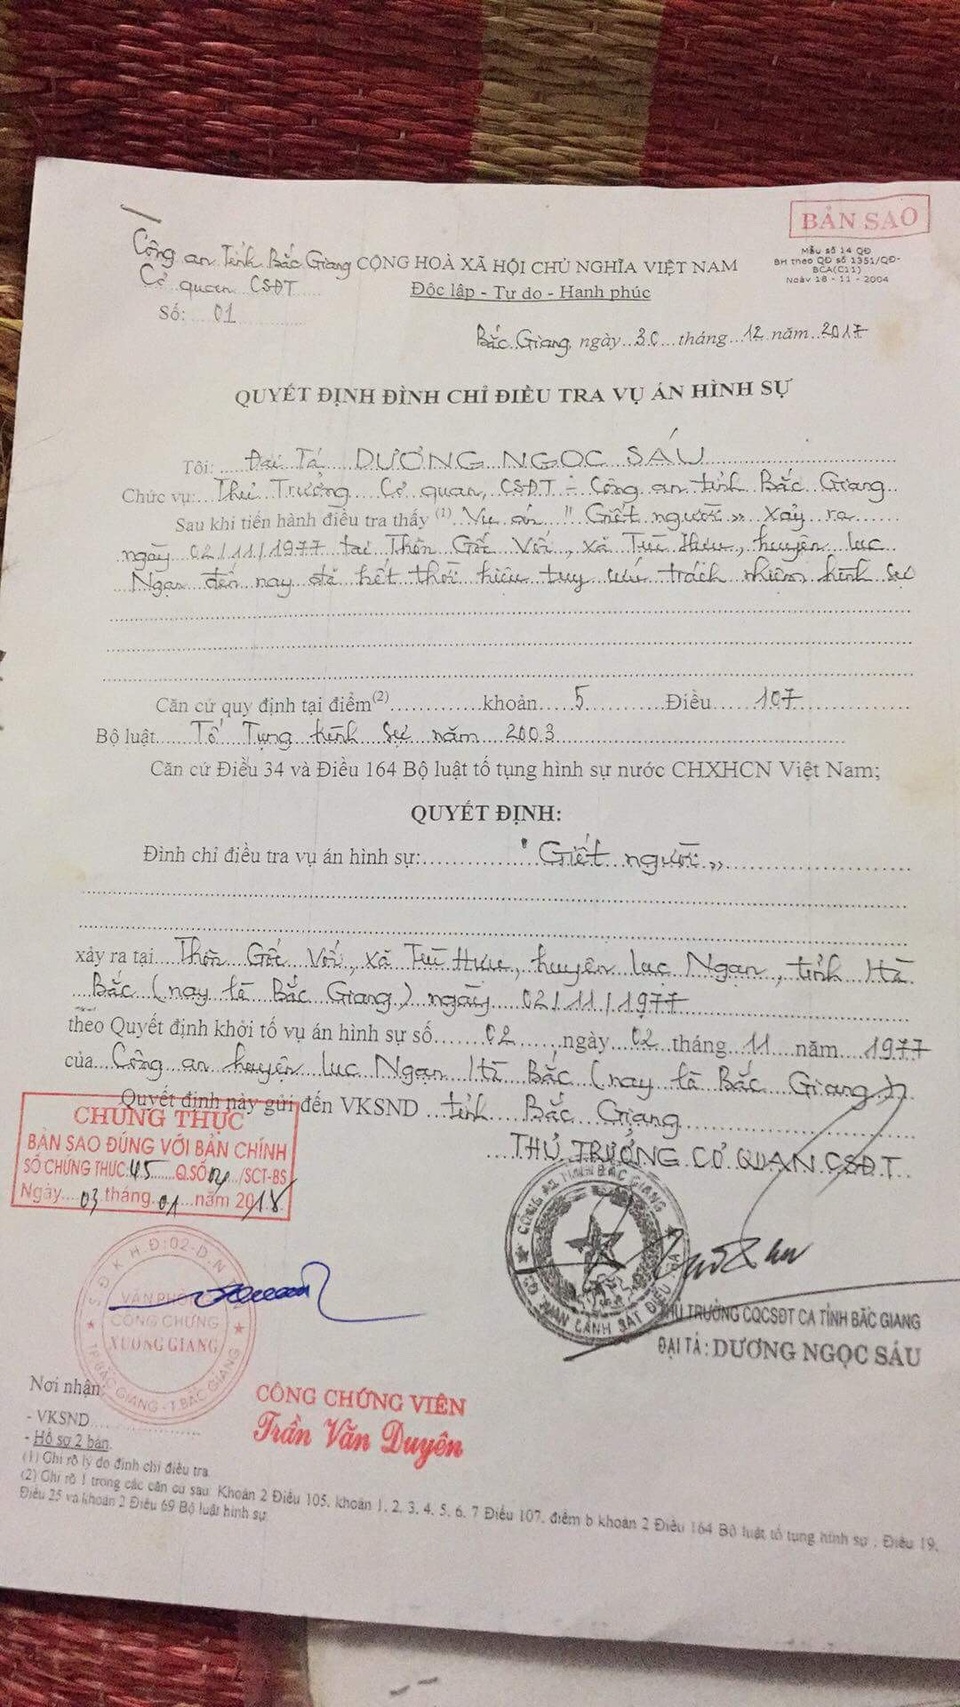 BẢN SAO
Mẫu số 14 QĐ
BH theo QĐ số 1351/QĐ-
BCA(C11)
Ngày 18 - 11 - 2004
Công an Tỉnh Bắc Giang
Cơ quan CSĐT
Số: 01
CỘNG HOÀ XÃ HỘI CHỦ NGHĨA VIỆT NAM
Độc lập - Tự do - Hạnh phúc
Bắc Giang, ngày 30 tháng 12 năm 2017
QUYẾT ĐỊNH ĐÌNH CHỈ ĐIỀU TRA VỤ ÁN HÌNH SỰ
Tôi: Đại Tá DƯƠNG NGỌC SÁU
Chức vụ: Thủ Trưởng Cơ quan CSĐT - Công an tỉnh Bắc Giang
Sau khi tiến hành điều tra thấy (1) Vụ án "Giết người" xảy ra
ngày 02/11/1977 tại Thôn Gốc Vối, xã Tuú Hưu, huyện lục
Ngạn đến nay đã hết thời hiệu truy cứu trách nhiệm hình sự
Căn cứ quy định tại điểm(2) khoản 5 Điều 107
Bộ luật Tố Tụng hình sự năm 2003
Căn cứ Điều 34 và Điều 164 Bộ luật tố tụng hình sự nước CHXHCN Việt Nam;
QUYẾT ĐỊNH:
Đình chỉ điều tra vụ án hình sự: "Giết người"
xảy ra tại Thôn Gốc Vối, xã Tuú Hưu, huyện lục Ngạn, tỉnh Hà
Bắc (nay là Bắc Giang) ngày 02/11/1977
theo Quyết định khởi tố vụ án hình sự số 02 ngày 02 tháng 11 năm 1977
của Công an huyện lục Ngạn Hà Bắc (nay là Bắc Giang)
Quyết định này gửi đến VKSND tỉnh Bắc Giang
CHỨNG THỰC
BẢN SAO ĐÚNG VỚI BẢN CHÍNH
SỐ CHỨNG THỰC 45 Q.SỐ 01 /SCT-BS
Ngày 03 tháng 01 năm 2018
THỦ TRƯỞNG CƠ QUAN CSĐT
CÔNG AN TỈNH BẮC GIANG
CƠ QUAN CẢNH SÁT ĐIỀU TRA
S.Đ.K.H.Đ:02-D.N
VĂN PHÒNG
CÔNG CHỨNG
XƯƠNG GIANG
TP.BẮC GIANG - T.BẮC GIANG
THỦ TRƯỞNG CQCSĐT CA TỈNH BẮC GIANG
ĐẠI TÁ: DƯƠNG NGỌC SÁU
Nơi nhận:
- VKSND
- Hồ sơ 2 bản.
CÔNG CHỨNG VIÊN
Trần Văn Duyên
(1) Ghi rõ lý do đình chỉ điều tra
(2) Ghi rõ 1 trong các căn cứ sau: Khoản 2 Điều 105, khoản 1, 2, 3, 4, 5, 6, 7 Điều 107, điểm b khoản 2 Điều 164 Bộ luật tố tụng hình sự ; Điều 19,
Điều 25 và khoản 2 Điều 69 Bộ luật hình sự